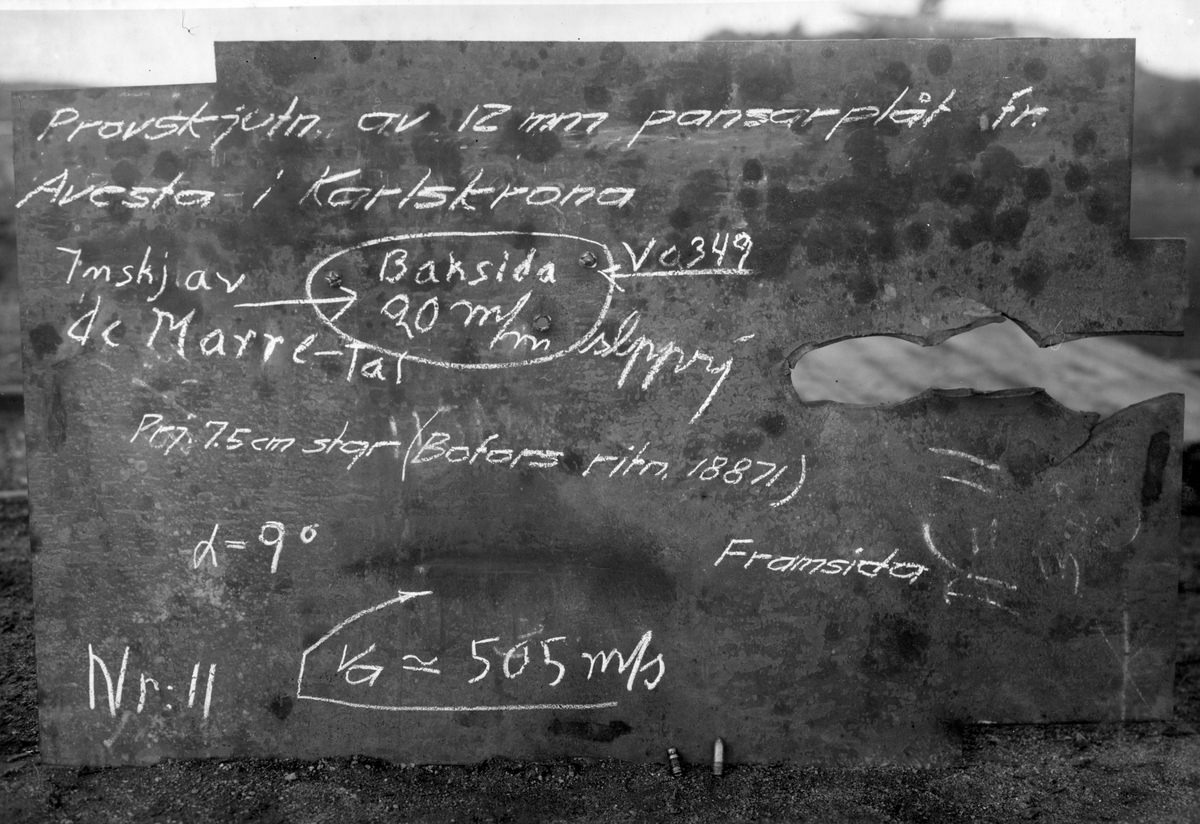 Provskjutn. av 12 mm pansarplåt fr.
Avesta i Karlskrona
Inskj av
de Marre-Tal
Baksida
20 m/m slpprj
Va349
Prj. 7.5 cm stgr (Bofors ritn. 18871)
α = 9°
Framsida
Va ≃ 505 m/s
Nr: 11